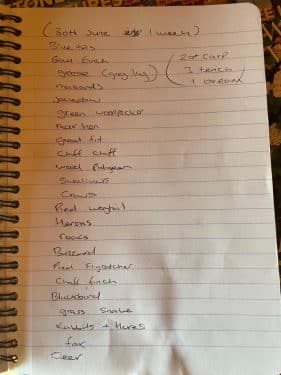 (30th June 1 week)
Blue tits
Goldfinch
geese (grey lag)
(20+ carp
3 tench
1 bream
mallards
Jackdaw
green woodpecker
moor hen
Great tit
Chiff Chaff
wood Pidgeon
Swallows
Crows
Pied wagtail
Herons
rooks
Buzzard
Pied Flycatcher
Chaffinch
Blackbird
grass snake
Rabbits + Hares
fox
Deer